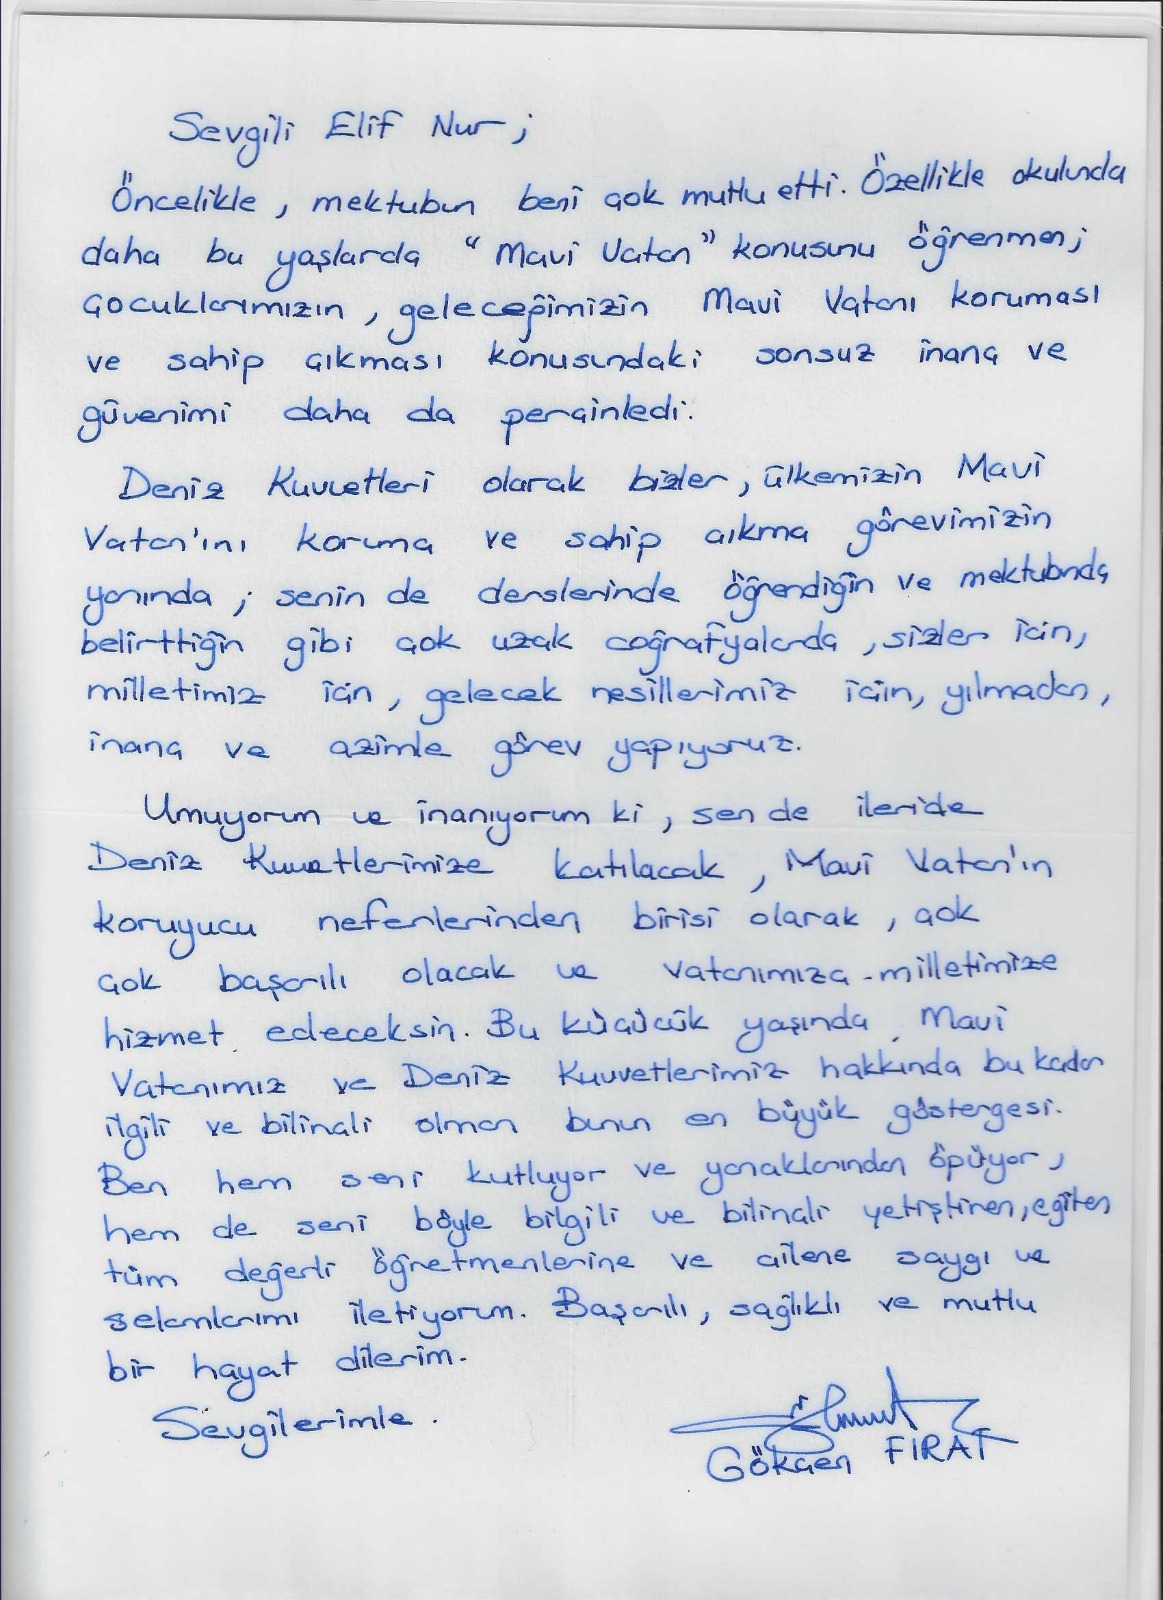 Sevgili Elif Nur;
Öncelikle, mektubun beni çok mutlu etti. Özellikle okulunda
daha bu yaşlarda "Mavi Vatan" konusunu öğrenmen;
çocuklarımızın, geleceğimizin Mavi Vatanı koruması
ve sahip çıkması konusundaki sonsuz inanç ve
güvenimi daha da perçinledi.
Deniz Kuvvetleri olarak bizler, ülkemizin Mavi
Vatan'ını koruma ve sahip çıkma görevimizin
yanında; senin de derslerinde öğrendiğin ve mektubunda
belirttiğin gibi çok uzak coğrafyalarda, sizler için,
milletimiz için, gelecek nesillerimiz için, yılmadan,
inanç ve azimle görev yapıyoruz.
Umuyorum ve inanıyorum ki, sen de ileride
Deniz Kuvvetlerimize katılacak, Mavi Vatan'ın
koruyucu neferlerinden birisi olarak, çok
çok başarılı olacak ve vatanımıza-milletimize
hizmet edeceksin. Bu küçücük yaşında Mavi
Vatanımız ve Deniz Kuvvetlerimiz hakkında bu kadar
ilgili ve bilinçli olman bunun en büyük göstergesi.
Ben hem seni kutluyor ve yanaklarından öpüyor,
hem de seni böyle bilgili ve bilinçli yetiştiren, eğiten
tüm değerli öğretmenlerine ve ailene saygı ve
selamlarımı iletiyorum. Başarılı, sağlıklı ve mutlu
bir hayat dilerim.
Sevgilerimle.
Gökçen FIRAT